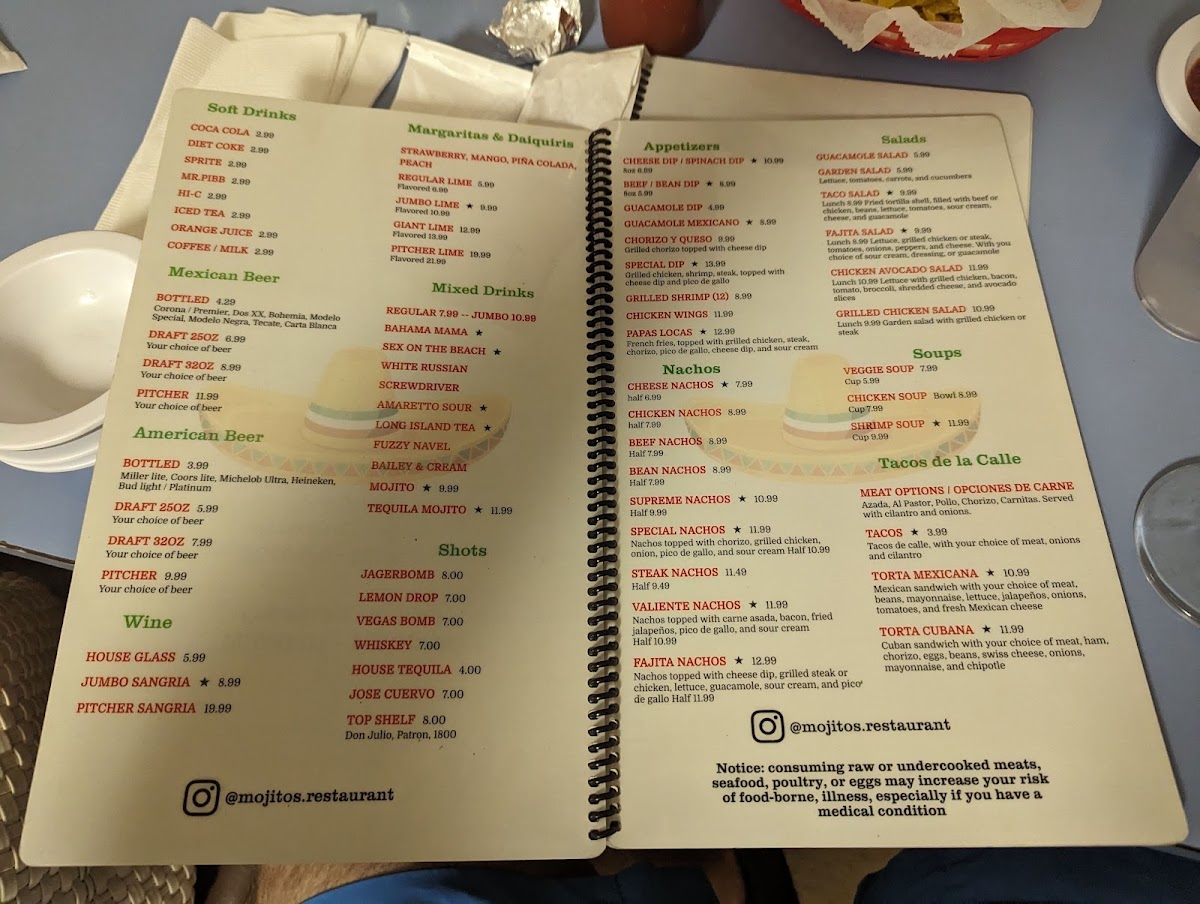 Soft Drinks
COCA COLA 2.99
DIET COKE 2.99
SPRITE 2.99
MR.PIBB 2.99
HI-C 2.99
ICED TEA 2.99
ORANGE JUICE 2.99
COFFEE / MILK 2.99
Mexican Beer
BOTTLED 4.29
Corona / Premier, Dos XX, Bohemia, Modelo
Special, Modelo Negra, Tecate, Carta Blanca
DRAFT 25OZ 6.99
Your choice of beer
DRAFT 32OZ 8.99
Your choice of beer
PITCHER 11.99
Your choice of beer
American Beer
BOTTLED 3.99
Miller lite, Coors lite, Michelob Ultra, Heineken,
Bud light / Platinum
DRAFT 25OZ 5.99
Your choice of beer
DRAFT 32OZ 7.99
Your choice of beer
PITCHER 9.99
Your choice of beer
Wine
HOUSE GLASS 5.99
JUMBO SANGRIA ★ 8.99
PITCHER SANGRIA 19.99
Margaritas & Daiquiris
STRAWBERRY, MANGO, PIÑA COLADA,
PEACH
REGULAR LIME 5.99
Flavored 6.99
JUMBO LIME ★ 9.99
Flavored 10.99
GIANT LIME 12.99
Flavored 13.99
PITCHER LIME 19.99
Flavored 21.99
Mixed Drinks
REGULAR 7.99 -- JUMBO 10.99
BAHAMA MAMA ★
SEX ON THE BEACH ★
WHITE RUSSIAN
SCREWDRIVER
AMARETTO SOUR ★
LONG ISLAND TEA ★
FUZZY NAVEL
BAILEY & CREAM
MOJITO ★ 9.99
TEQUILA MOJITO ★ 11.99
Shots
JAGERBOMB 8.00
LEMON DROP 7.00
VEGAS BOMB 7.00
WHISKEY 7.00
HOUSE TEQUILA 4.00
JOSE CUERVO 7.00
TOP SHELF 8.00
Don Julio, Patron, 1800
@mojitos.restaurant
Appetizers
CHEESE DIP / SPINACH DIP ★ 10.99
8oz 6.99
BEEF / BEAN DIP ★ 8.99
8oz 5.99
GUACAMOLE DIP 4.99
GUACAMOLE MEXICANO ★ 8.99
CHORIZO Y QUESO 9.99
Grilled chorizo topped with cheese dip
SPECIAL DIP ★ 13.99
Grilled chicken, shrimp, steak, topped with
cheese dip and pico de gallo
GRILLED SHRIMP (12) 8.99
CHICKEN WINGS 11.99
PAPAS LOCAS ★ 12.99
French fries, topped with grilled chicken, steak,
chorizo, pico de gallo, cheese dip, and sour cream
Nachos
CHEESE NACHOS ★ 7.99
half 6.99
CHICKEN NACHOS 8.99
half 7.99
BEEF NACHOS 8.99
Half 7.99
BEAN NACHOS 8.99
Half 7.99
SUPREME NACHOS ★ 10.99
Half 9.99
SPECIAL NACHOS ★ 11.99
Nachos topped with chorizo, grilled chicken,
onion, pico de gallo, and sour cream Half 10.99
STEAK NACHOS 11.49
Half 9.49
VALIENTE NACHOS ★ 11.99
Nachos topped with carne asada, bacon, fried
jalapeños, pico de gallo, and sour cream
Half 10.99
FAJITA NACHOS ★ 12.99
Nachos topped with cheese dip, grilled steak or
chicken, lettuce, guacamole, sour cream, and pico
de gallo Half 11.99
Salads
GUACAMOLE SALAD 5.99
GARDEN SALAD 5.99
Lettuce, tomatoes, carrots, and cucumbers
TACO SALAD ★ 9.99
Lunch 8.99 Fried tortilla shell, filled with beef or
chicken, beans, lettuce, tomatoes, sour cream,
cheese, and guacamole
FAJITA SALAD ★ 9.99
Lunch 8.99 Lettuce, grilled chicken or steak,
tomatoes, onions, peppers, and cheese. With you
choice of sour cream, dressing, or guacamole
CHICKEN AVOCADO SALAD 11.99
Lunch 10.99 Lettuce with grilled chicken, bacon,
tomato, broccoli, shredded cheese, and avocado
slices
GRILLED CHICKEN SALAD 10.99
Lunch 9.99 Garden salad with grilled chicken or
steak
Soups
VEGGIE SOUP 7.99
Cup 5.99
CHICKEN SOUP Bowl 8.99
Cup 7.99
SHRIMP SOUP ★ 11.99
Cup 9.99
Tacos de la Calle
MEAT OPTIONS / OPCIONES DE CARNE
Azada, Al Pastor, Pollo, Chorizo, Carnitas. Served
with cilantro and onions.
TACOS ★ 3.99
Tacos de calle, with your choice of meat, onions
and cilantro
TORTA MEXICANA ★ 10.99
Mexican sandwich with your choice of meat,
beans, mayonnaise, lettuce, jalapeños, onions,
tomatoes, and fresh Mexican cheese
TORTA CUBANA ★ 11.99
Cuban sandwich with your choice of meat, ham,
chorizo, eggs, beans, swiss cheese, onions,
mayonnaise, and chipotle
@mojitos.restaurant
Notice: consuming raw or undercooked meats,
seafood, poultry, or eggs may increase your risk
of food-borne, illness, especially if you have a
medical condition